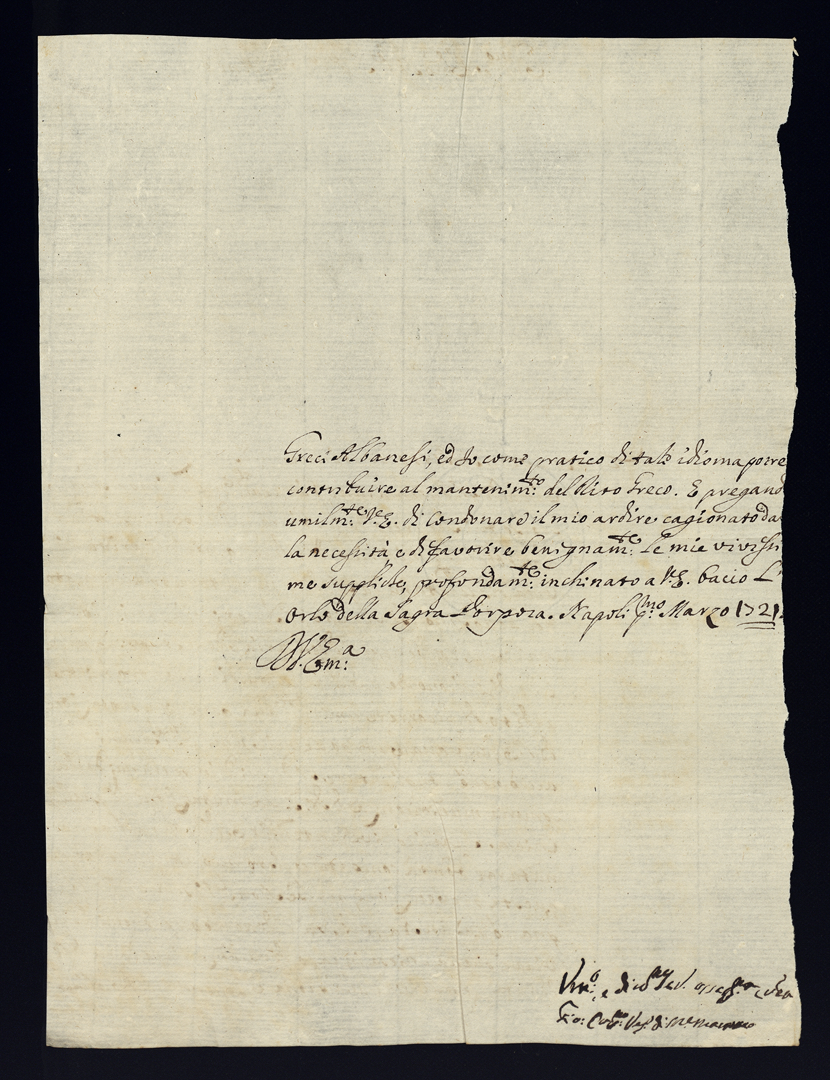 Greci Albanesi, ed Io come pratico di tale idioma potre
contribuire al mantenim.to del Rito Greco. E pregand
umilm.te V.E. di condonare il mio ardire cagionato da
la necessità e di favorire benignam.te le mie vivissi
me suppliche, profondam.te inchinato a V.E. bacio l'
orlo della Sagra Porpora. Napoli p.mo Marzo 1721
D.V. Em.a
Um.o, e di
Gio: